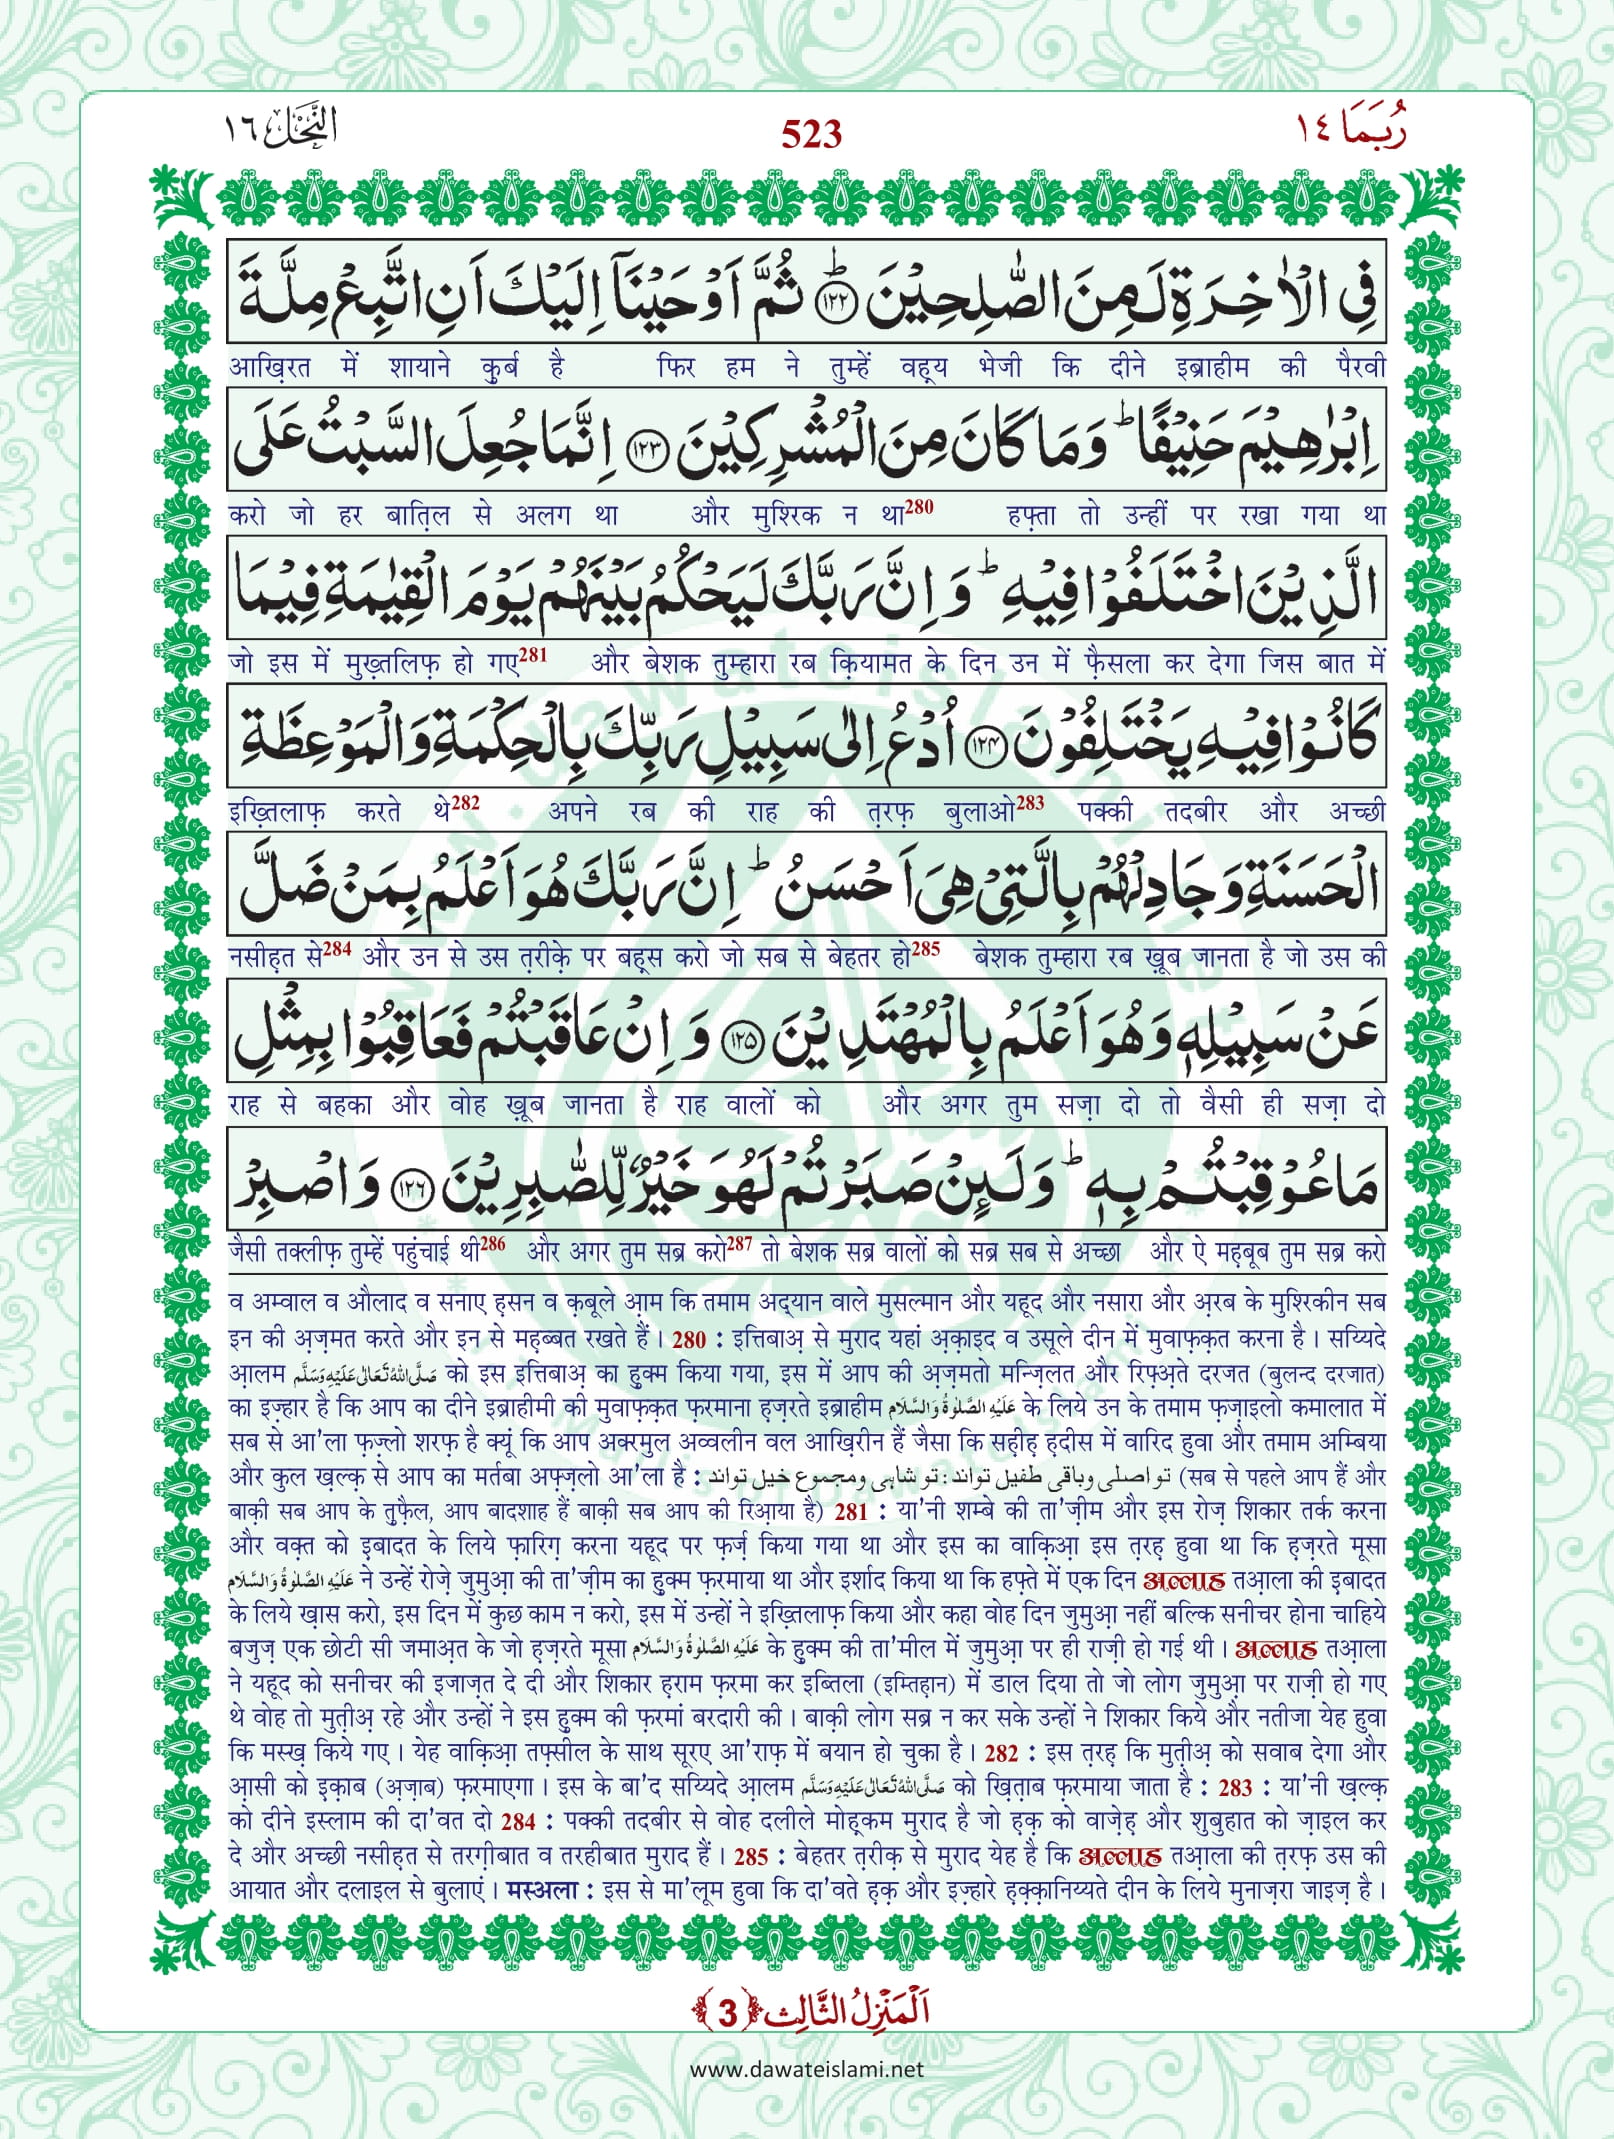 النَّحْل ١٦
523
رُبَمَا ١٤
فِی الْاٰخِرَةِ لَمِنَ الصّٰلِحِیْنَؕ۝۱۲۲ ثُمَّ اَوْحَیْنَاۤ اِلَیْكَ اَنِ اتَّبِعْ مِلَّةَ
आख़िरत में शायाने कुर्ब है फिर हम ने तुम्हें वह़्य भेजी कि दीने इब्राहीम की पैरवी
اِبْرٰهِیْمَ حَنِیْفًاؕ وَمَا كَانَ مِنَ الْمُشْرِكِیْنَ۝۱۲۳ اِنَّمَا جُعِلَ السَّبْتُ عَلَی
करो जो हर बात़िल से अलग था और मुश्रिक न था280 हफ़्ता तो उन्हीं पर रखा गया था
الَّذِیْنَ اخْتَلَفُوْا فِیْهِؕ وَ اِنَّ رَبَّكَ لَیَحْكُمُ بَیْنَهُمْ یَوْمَ الْقِیٰمَةِ فِیْمَا
जो इस में मुख़्तलिफ़ हो गए281 और बेशक तुम्हारा रब क़ियामत के दिन उन में फ़ैसला कर देगा जिस बात में
كَانُوْا فِیْهِ یَخْتَلِفُوْنَ۝۱۲۴ اُدْعُ اِلٰی سَبِیْلِ رَبِّكَ بِالْحِكْمَةِ وَالْمَوْعِظَةِ
इख़्तिलाफ़ करते थे282 अपने रब की राह की त़रफ़ बुलाओ283 पक्की तदबीर और अच्छी
الْحَسَنَةِ وَجَادِلْهُمْ بِالَّتِیْ هِیَ اَحْسَنُؕ اِنَّ رَبَّكَ هُوَ اَعْلَمُ بِمَنْ ضَلَّ
नसीह़त से284 और उन से उस त़रीक़े पर बह़्स करो जो सब से बेहतर हो285 बेशक तुम्हारा रब ख़ूब जानता है जो उस की
عَنْ سَبِیْلِهٖ وَهُوَ اَعْلَمُ بِالْمُهْتَدِیْنَ۝۱۲۵ وَ اِنْ عَاقَبْتُمْ فَعَاقِبُوْا بِمِثْلِ
राह से बहका और वोह ख़ूब जानता है राह वालों को और अगर तुम सज़ा दो तो वैसी ही सज़ा दो
مَا عُوْقِبْتُمْ بِهٖؕ وَلَىِٕنْ صَبَرْتُمْ لَهُوَ خَیْرٌ لِّلصّٰبِرِیْنَ۝۱۲۶ وَاصْبِرْ
जैसी तक्लीफ़ तुम्हें पहुंचाई थी286 और अगर तुम सब्र करो287 तो बेशक सब्र वालों को सब्र सब से अच्छा और ऐ मह़बूब तुम सब्र करो
व अम्वाल व औलाद व सनाए ह़सन व क़बूले आ़म कि तमाम अद्यान वाले मुसल्मान और यहूद और नसारा और अ़रब के मुश्रिकीन सब
इन की अ़ज़मत करते और इन से मह़ब्बत रखते हैं। 280 : इत्तिबाअ़ से मुराद यहां अ़क़ाइद व उसूले दीन में मुवाफ़क़त करना है। सय्यिदे
आ़लम صَلَّی اللہُ تَعَالٰی عَلَیْہِ وَسَلَّم को इस इत्तिबाअ़ का हुक्म किया गया, इस में आप की अ़ज़मतो मन्ज़िलत और रिफ़्अ़ते दरजत (बुलन्द दरजात)
का इज़्हार है कि आप का दीने इब्राहीमी की मुवाफ़क़त फ़रमाना ह़ज़रते इब्राहीम عَلَیْہِ الصَّلٰوۃُ وَالسَّلَام के लिये उन के तमाम फ़ज़ाइलो कमालात में
सब से आ'ला फ़ज़्लो शरफ़ है क्यूं कि आप अक्रमुल अव्वलीन वल आख़िरीन हैं जैसा कि सह़ीह़ ह़दीस में वारिद हुवा और तमाम अम्बिया
और कुल ख़ल्क़ से आप का मर्तबा अफ़्ज़लो आ'ला है : تو اصلی و باقی طفیل تواند : تو شاہی و مجموع خیل تواند (सब से पहले आप हैं और
बाक़ी सब आप के तुफ़ैल, आप बादशाह हैं बाक़ी सब आप की रिआ़या है) 281 : या'नी शम्बे की ता'ज़ीम और इस रोज़ शिकार तर्क करना
और वक़्त को इ़बादत के लिये फ़ारिग़ करना यहूद पर फ़र्ज़ किया गया था और इस का वाक़िआ़ इस त़रह़ हुवा था कि ह़ज़रते मूसा
عَلَیْہِ الصَّلٰوۃُ وَالسَّلَام ने उन्हें रोज़े जुमुआ़ की ता'ज़ीम का हुक्म फ़रमाया था और इर्शाद किया था कि हफ़्ते में एक दिन अल्लाह तआ़ला की इबादत
के लिये ख़ास करो, इस दिन में कुछ काम न करो, इस में उन्हों ने इख़्तिलाफ़ किया और कहा वोह दिन जुमुआ़ नहीं बल्कि सनीचर होना चाहिये
बजुज़ एक छोटी सी जमाअ़त के जो ह़ज़रते मूसा عَلَیْہِ الصَّلٰوۃُ وَالسَّلَام के हुक्म की ता'मील में जुमुआ़ पर ही राज़ी हो गई थी। अल्लाह तआ़ला
ने यहूद को सनीचर की इजाज़त दे दी और शिकार ह़राम फ़रमा कर इब्तिला (इम्तिह़ान) में डाल दिया तो जो लोग जुमुआ़ पर राज़ी हो गए
थे वोह तो मुत़ीअ़ रहे और उन्हों ने इस हुक्म की फ़रमां बरदारी की। बाक़ी लोग सब्र न कर सके उन्हों ने शिकार किये और नतीजा येह हुवा
कि मस्ख़ किये गए। येह वाक़िआ़ तफ़्सील के साथ सूरए आ'राफ़ में बयान हो चुका है। 282 : इस त़रह़ कि मुत़ीअ़ को सवाब देगा और
आ़सी को इ़क़ाब (अ़ज़ाब) फ़रमाएगा। इस के बा'द सय्यिदे आ़लम صَلَّی اللہُ تَعَالٰی عَلَیْہِ وَسَلَّم को ख़ित़ाब फ़रमाया जाता है : 283 : या'नी ख़ल्क़
को दीने इस्लाम की दा'वत दो 284 : पक्की तदबीर से वोह दलीले मोह़्कम मुराद है जो ह़क़ को वाज़ेह़ और शुबुहात को ज़ाइल कर
दे और अच्छी नसीह़त से तरग़ीबात व तरहीबात मुराद हैं। 285 : बेहतर त़रीक़ से मुराद येह है कि अल्लाह तआ़ला की त़रफ़ उस की
आयात और दलाइल से बुलाएं। मस्अला : इस से मा'लूम हुवा कि दा'वते ह़क़ और इज़्हारे ह़क़्क़ानिय्यते दीन के लिये मुनाज़रा जाइज़ है।
اَلْمَنْزِلُ الثَّالِث ﴿3﴾
www.dawateislami.net